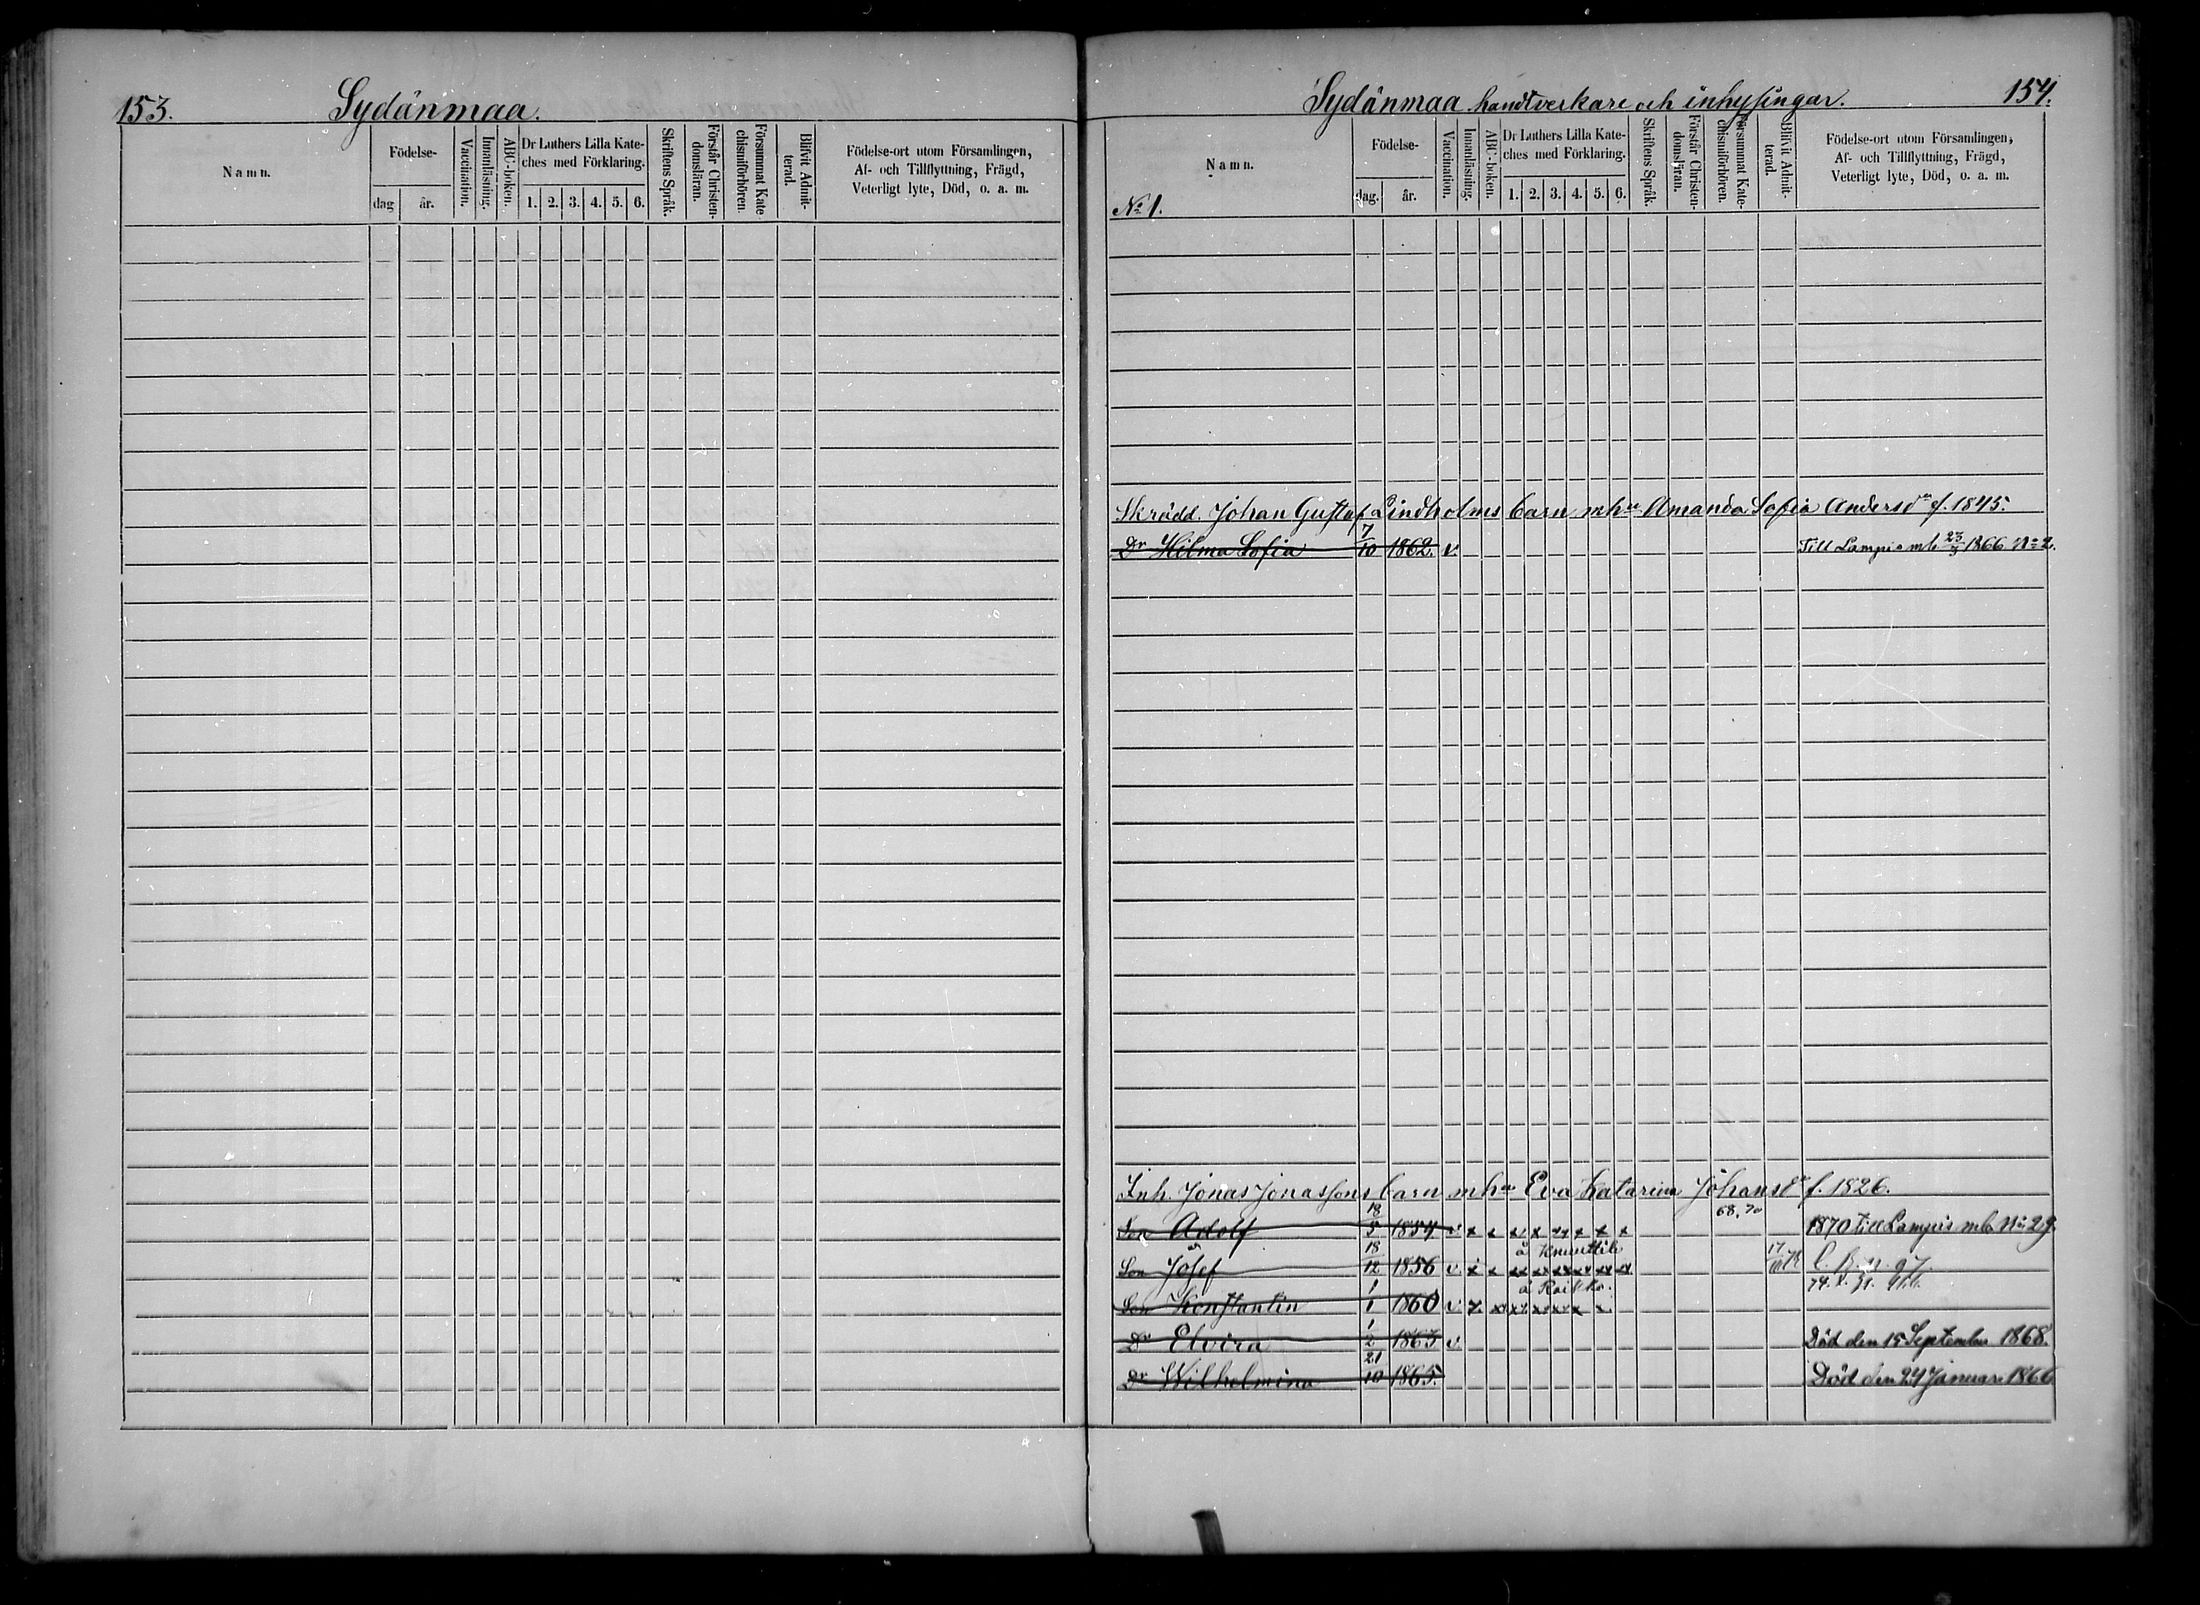 153. Sydänmaa.
Namn.
Födelse-
dag
år.
Vaccination.
Innanläsning.
ABC-boken.
Dr Luthers Lilla Kate-
ches med Förklaring.
1. 2. 3. 4. 5. 6.
Skriftens Språk.
Förstår Christen-
domsläran.
Försummat Kate
chismiförhören.
Blifvit Admit-
terad.
Födelse-ort utom Församlingen,
Af- och Tillflyttning, Frägd,
Veterligt lyte, Död, o. a. m.
Sydänmaa handtverkare och inhysingar. 154.
Namn.
No 1.
Födelse-
dag.
år.
Vaccination.
Innanläsning.
ABC-boken.
Dr Luthers Lilla Kate-
ches med Förklaring.
1. 2. 3. 4. 5. 6.
Skriftens Språk.
Förstår Christen-
domsläran.
Försummat Kate-
chismiförhören.
Blifvit Admit-
terad.
Födelse-ort utom Församlingen,
Af- och Tillflyttning, Frägd,
Veterligt lyte, Död, o. a. m.
Skrädd. Johan Gustaf Lindholms barn mhu Amanda Sofia Andersdr f. 1845.
Dr Hilma Sofia 7/10 1862. v Till Lampis mb 23/9 1866 No 2.
Inh. Jonas Jonassons barn mhu Eva Katarina Johansdr f. 1826.
68, 70
Son Adolf 18/5 1854 v x x x x x x x x 1870 till Lampis mb No 29.
å Knuuttila
Son Josef 18/12 1856 v x x x x x x x x
å Raikko.
Son Konstantin 1/1 1860 v x x x x x x x
Dr Elvira 1/2 1863 v Död den 15 September 1868.
Dr Wilhelmina 21/10 1865. Död den 24 Januari 1866